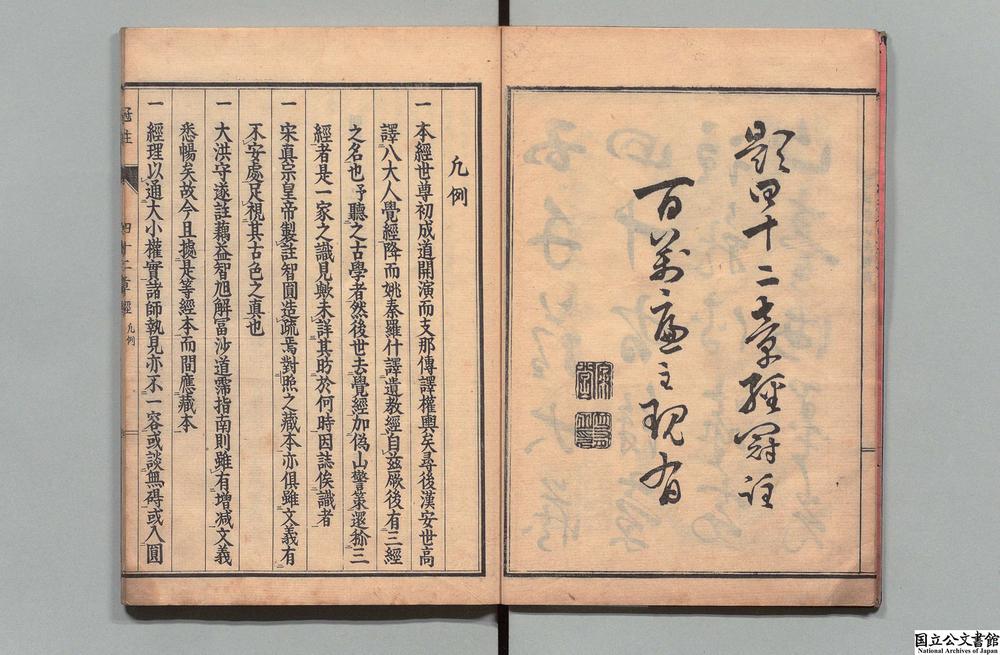 題四十二章經冠註
百萬庵主現有
凡例
一本經世尊初成道開演而支那傳譯權輿矣尋後漢安世高
譯八大人覺經降而姚秦羅什譯遺教經自茲厥後有三經
之名也予聽之古學者然後世去覺經加偽山警策還掀三
經者是一家之識見歟未詳其昉於何時因誌俟識者
一宋真宗皇帝製註智圓造疏焉對照之藏本亦俱雖文義有
不安處足視其古色之真也
一大洪守遂註藕益智旭解冨沙道霈指南則雖有増減文義
悉暢矣故今且據是等經本而間應藏本
一經理以通大小權實諸師執見亦不一容或談無碍或入圓
冠註
四十二章經
凡例
国立公文書館
National Archives of Japan